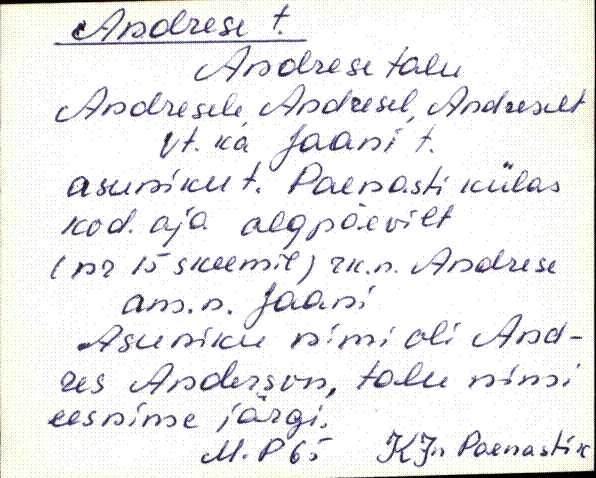 Andrese t.
Andrese talu
Andresele, Andresel, Andreselt
vt. ka Jaani t.
asuniku t. Paenasti külas
kod. aja algpäevilt
(nr 15 skeemil) rk.n. Andrese
am.n. Jaani
Asuniku nimi oli And-
res Anderson, talu nimi
eesnime järgi.
M.P 65 KJn Paenasti k